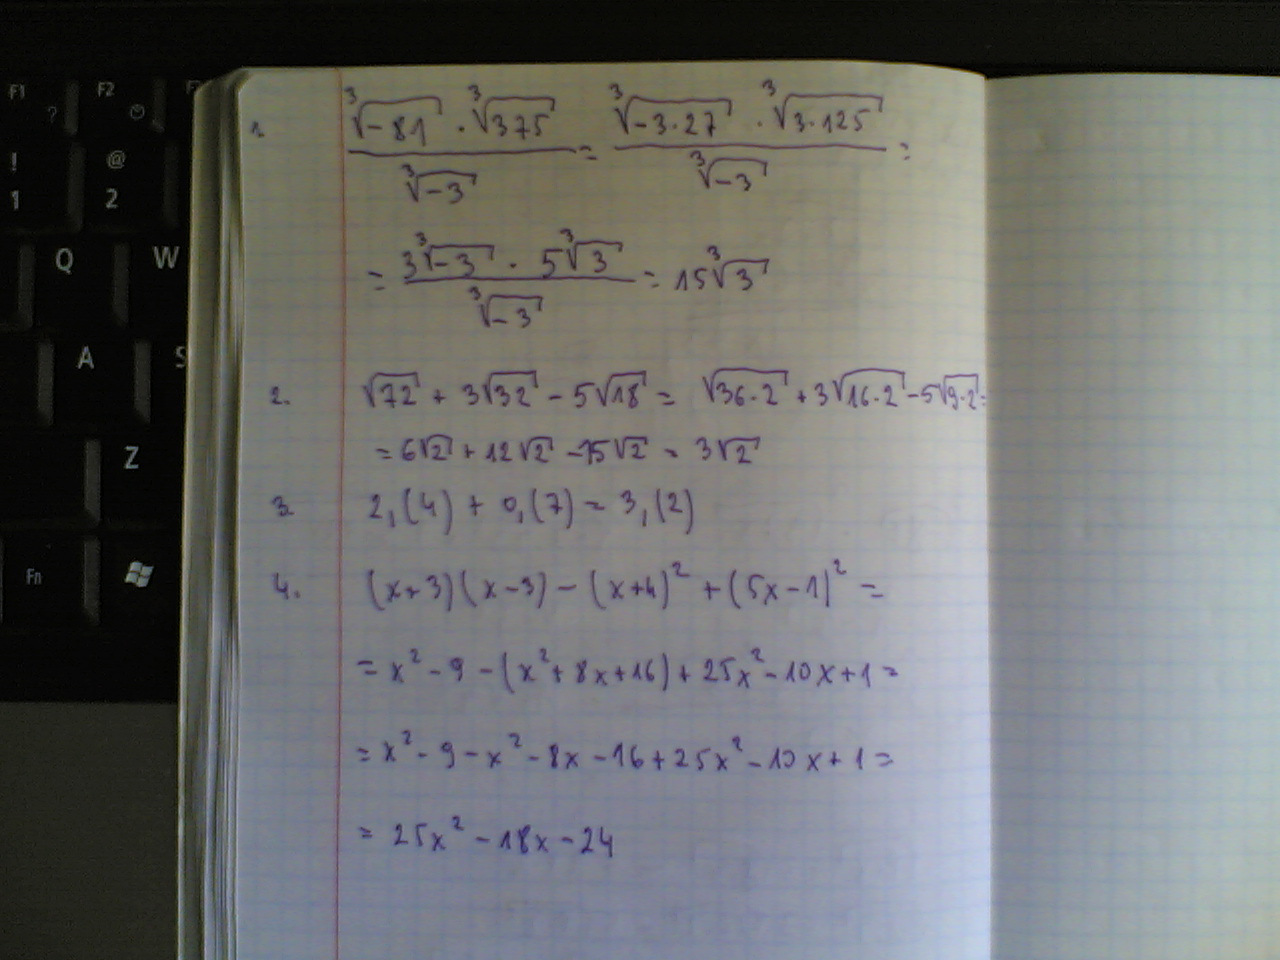 F1
F2
!
1
@
2
Q
W
A
S
Z
Fn
1. ∛-81 · ∛375 / ∛-3 = ∛-3·27 · ∛3·125 / ∛-3 =
= 3∛-3 · 5∛3 / ∛-3 = 15∛3
2. √72 + 3√32 - 5√18 = √36·2 + 3√16·2 - 5√9·2 =
= 6√2 + 12√2 - 15√2 = 3√2
3. 2,(4) + 0,(7) = 3,(2)
4. (x+3)(x-3) - (x+4)² + (5x-1)² =
= x² - 9 - (x² + 8x + 16) + 25x² - 10x + 1 =
= x² - 9 - x² - 8x - 16 + 25x² - 10x + 1 =
= 25x² - 18x - 24